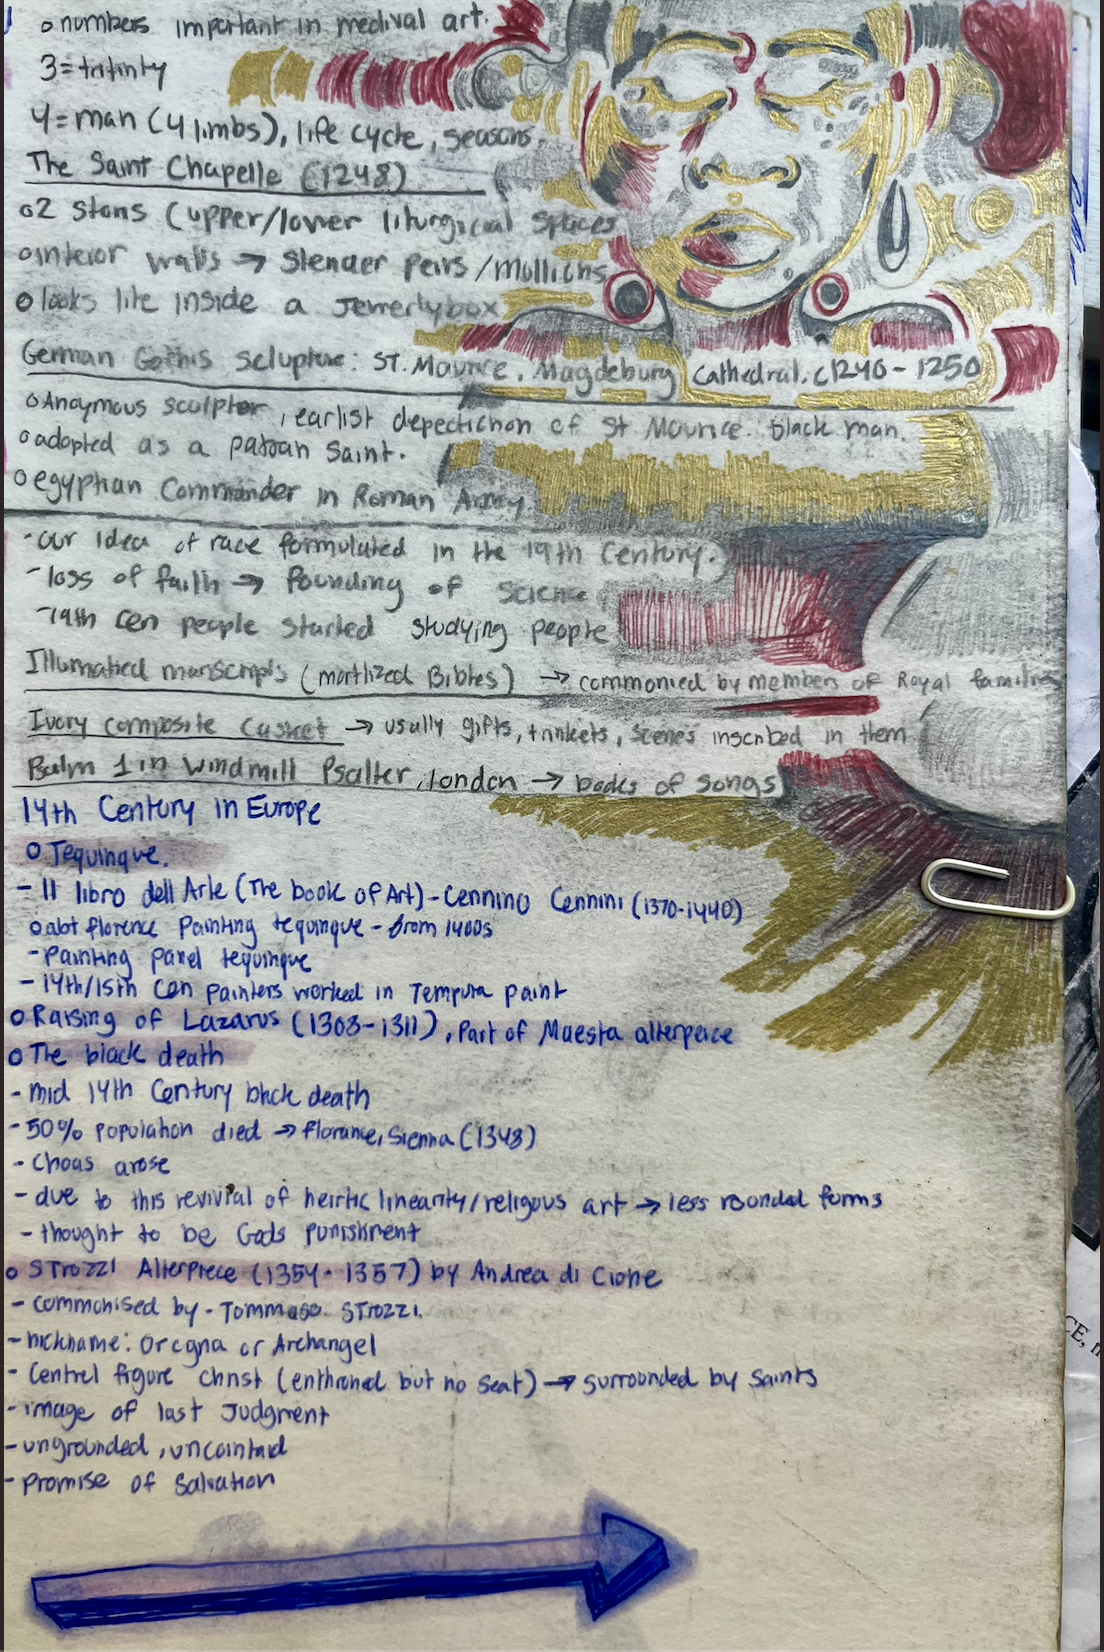 o numbers important in medival art.
3=tritinty
4=man (4 limbs), life cycle, seasons.
The Saint Chapelle (1248)
o2 stons (upper/lower liturgical spaces
ointeior walls → slender peirs/mullichs
o looks like inside a Jewerlybox
German Gothis sclupture: ST. Maurice, Magdeburg Cathedral. c1240-1250
o Anoymous sculptor, earlist depectichon of St Mourice. black man.
o adopted as a patroan Saint.
o egyptian Commander in Roman Army.
-our idea of race formulated in the 19th Century.
-loss of faith → founding of Science
-19th cen people started studying people
Illumatied manscripts (morlized Bibles) → commonied by members of Royal families
Ivory composite casket → usally gifts, trinkets, scenes inscribed in them
Psalm 1 in Windmill Psalter, london → books of songs
14th Century in Europe
o Tequinqve.
- Il libro dell Arte (The book of Art)-Cennino Cennini (1370-1440)
o abt florence Painting tequinque - from 1400s
-Painting panel tequinque
- 14th/15th cen painters worked in Tempura paint
o Raising of Lazarus (1308-1311), Part of Maesta alterpeice
o The black death
- mid 14th Century black death
- 50% population died → florance, Sienna (1348)
- Choas arose
- due to this revivial of heirtic linearity/religous art → less rounded forms
- thought to be Gods punishment
o STrozzi Alterpiece (1354-1357) by Andrea di Cione
- commonised by - Tommaso STrozzi.
- nickname: Orcgna or Archangel
- Centrel figure christ (enthroned but no seat) → surrounded by saints
- image of last Judgment
- ungrounded, uncointaid
- promise of Salvation
CE,